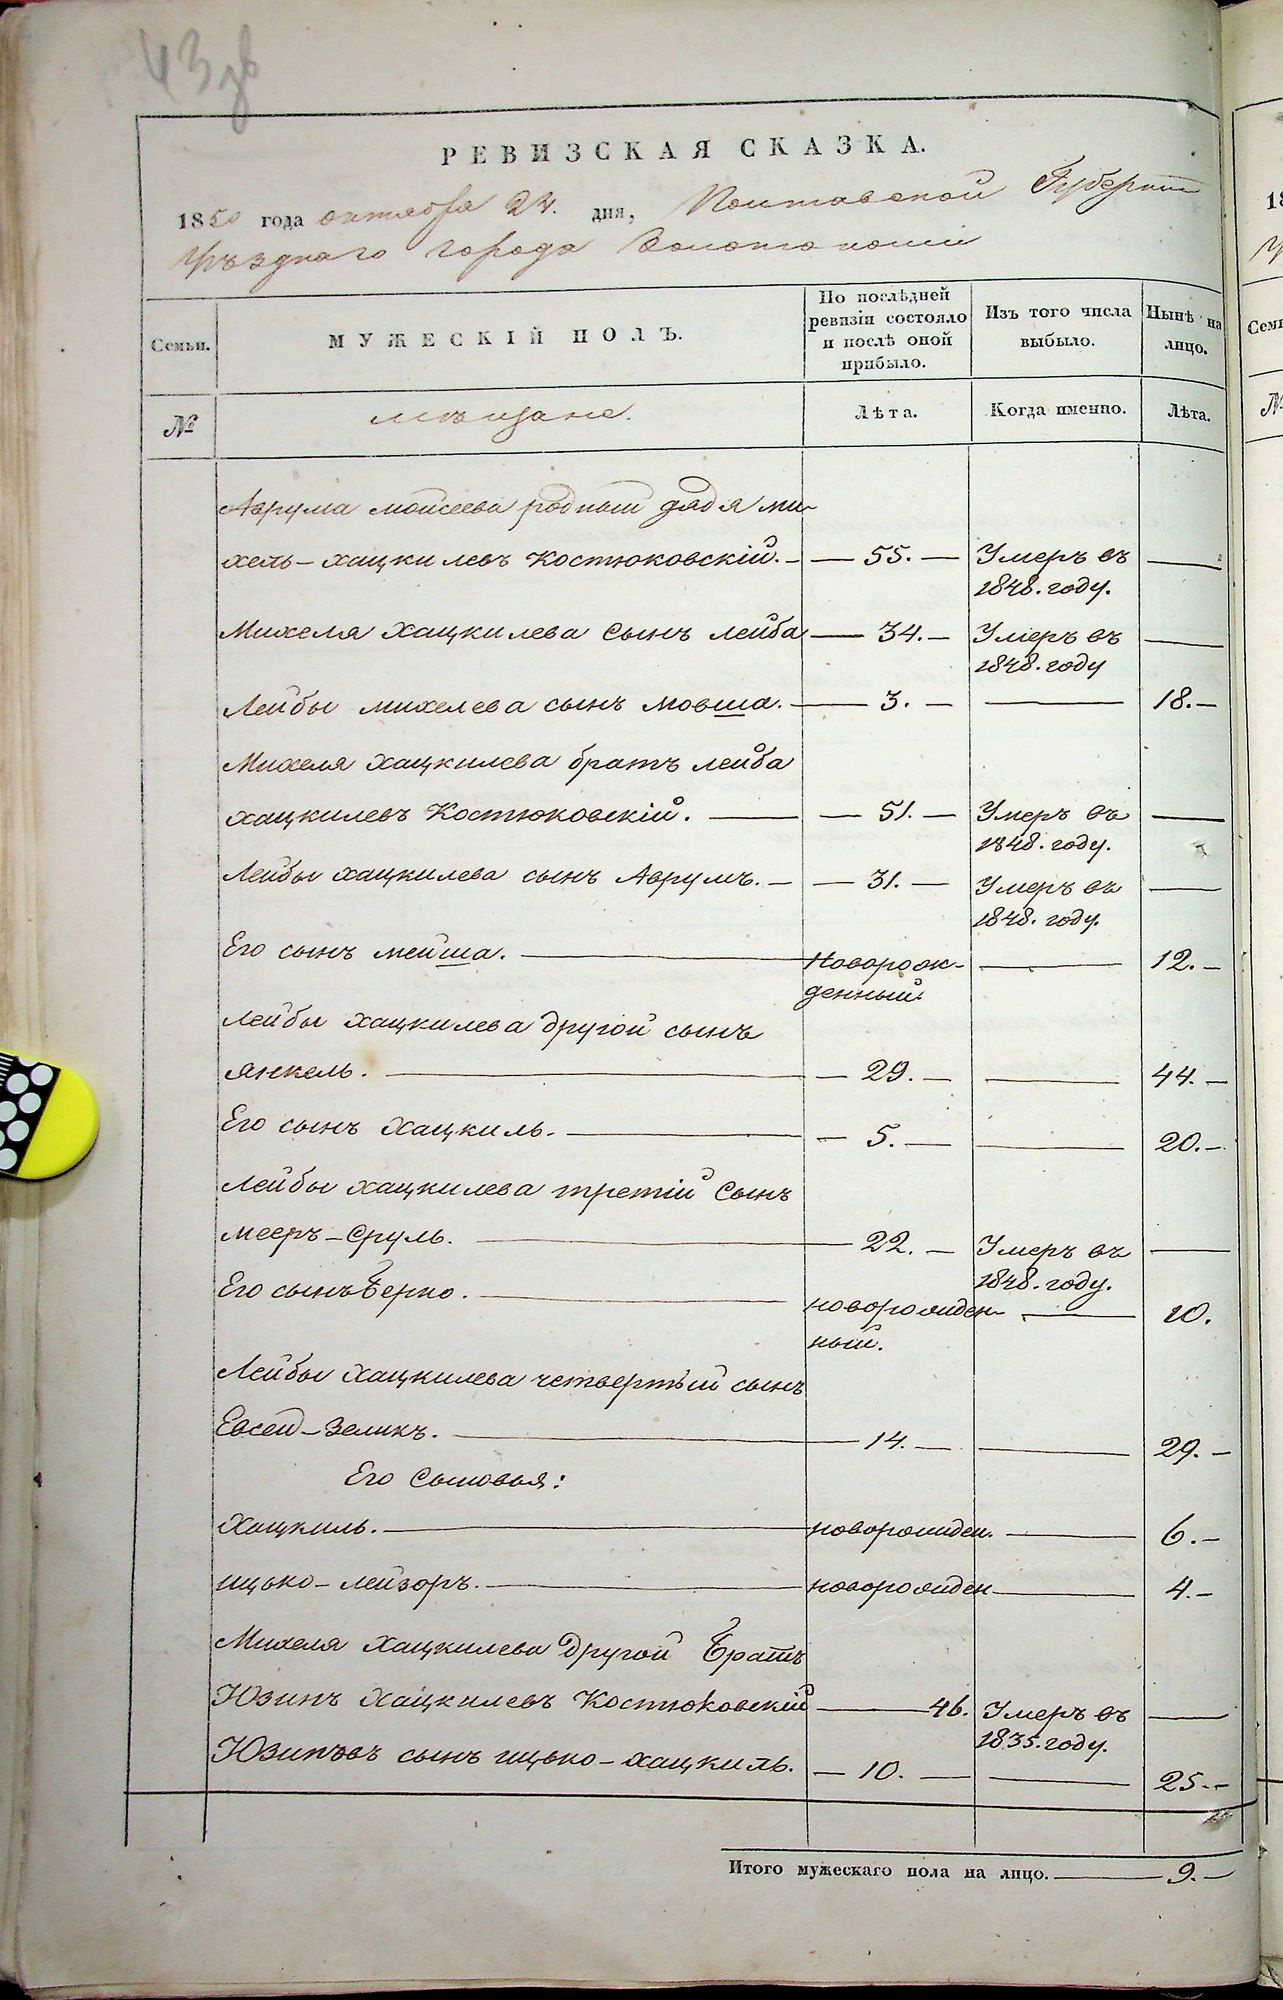 43 зв
РЕВИЗСКАЯ СКАЗКА.
1850 года октября 24. дня, Полтавской Губернии
Уѣзднаго города Золотоноши
Семьи. МУЖЕСКІЙ ПОЛЪ. По послѣдней ревизіи состояло и послѣ оной прибыло. Изъ того числа выбыло. Нынѣ на лицо.
№ мѣщане. Лѣта. Когда именно. Лѣта.
Аврума мойсеева родный дядя ми-
хель-хацкилевъ Костюковскій. — 55. — Умеръ въ —
1848. году.
Михеля Хацкилева Сынъ лейба — 34. — Умеръ въ —
1848. году
Лейбы михелева сынъ мовша. — 3. — — 18. —
Михеля хацкилева братъ лейба
хацкилевъ Костюковскій. — 51. — Умеръ въ —
1848. году.
Лейбы хацкилева сынъ Аврумъ. — 31. — Умеръ въ —
1848. году.
Его сынъ мейша. — Новорож- — 12. —
денный.
Лейбы хацкилева другой сынъ
янкель. — 29. — — 44. —
Его сынъ хацкиль. — 5. — — 20. —
Лейбы хацкилева третій Сынъ
мееръ-Сруль. — 22. — Умеръ въ —
1848. году.
Его сынъ Берко. — новорожден- — 10.
ный.
Лейбы хацкилева четвертый сынъ
Евсей-Зеликъ. — 14. — — 29. —
Его Сыновья:
Хацкиль. — новорожден. — 6. —
ицько-лейзоръ. — новорожден — 4. —
Михеля Хацкилева другой Братъ
Юзипъ хацкилевъ Костюковскій — 46. Умеръ въ —
1835. году.
Юзиповъ сынъ ицько-хацкиль. — 10. — — 25. —
Итого мужескаго пола на лицо. — 9. —